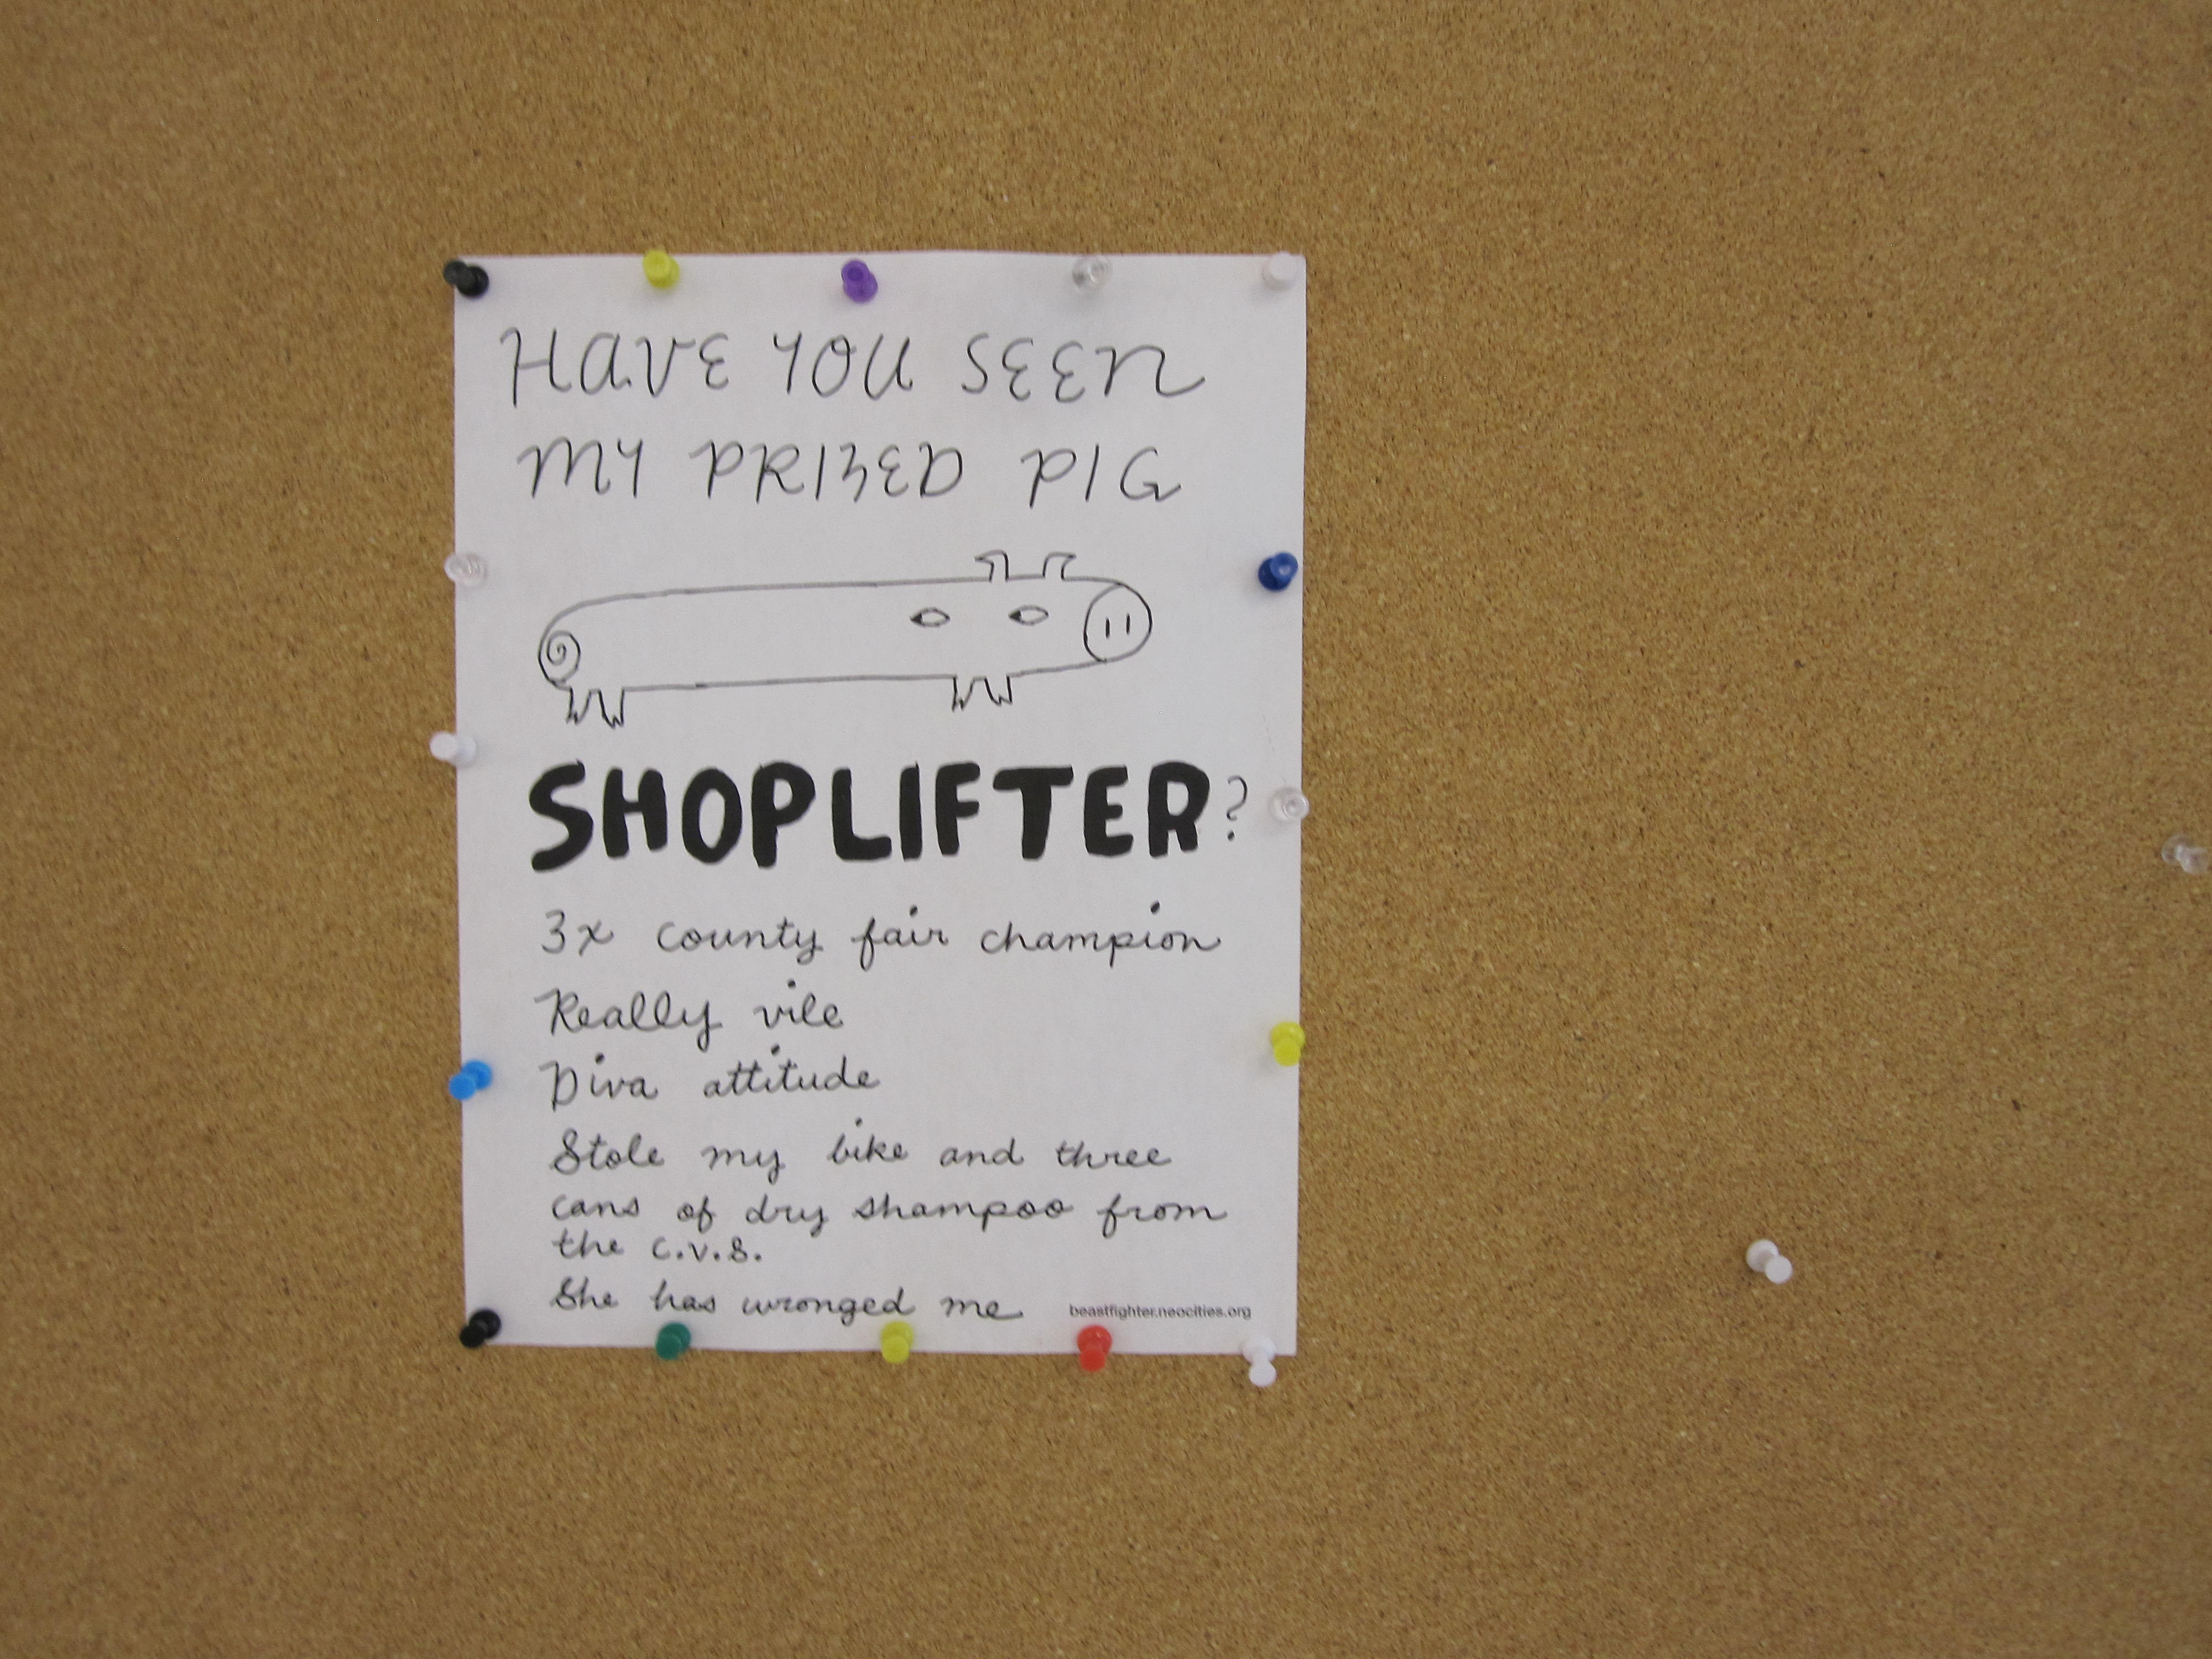 HAVE YOU SEEN
MY PRIZED PIG
SHOPLIFTER?
3x county fair champion
Really vile
Diva attitude
Stole my bike and three
cans of dry shampoo from
the c.v.s.
She has wronged me
beastfighter.neocities.org